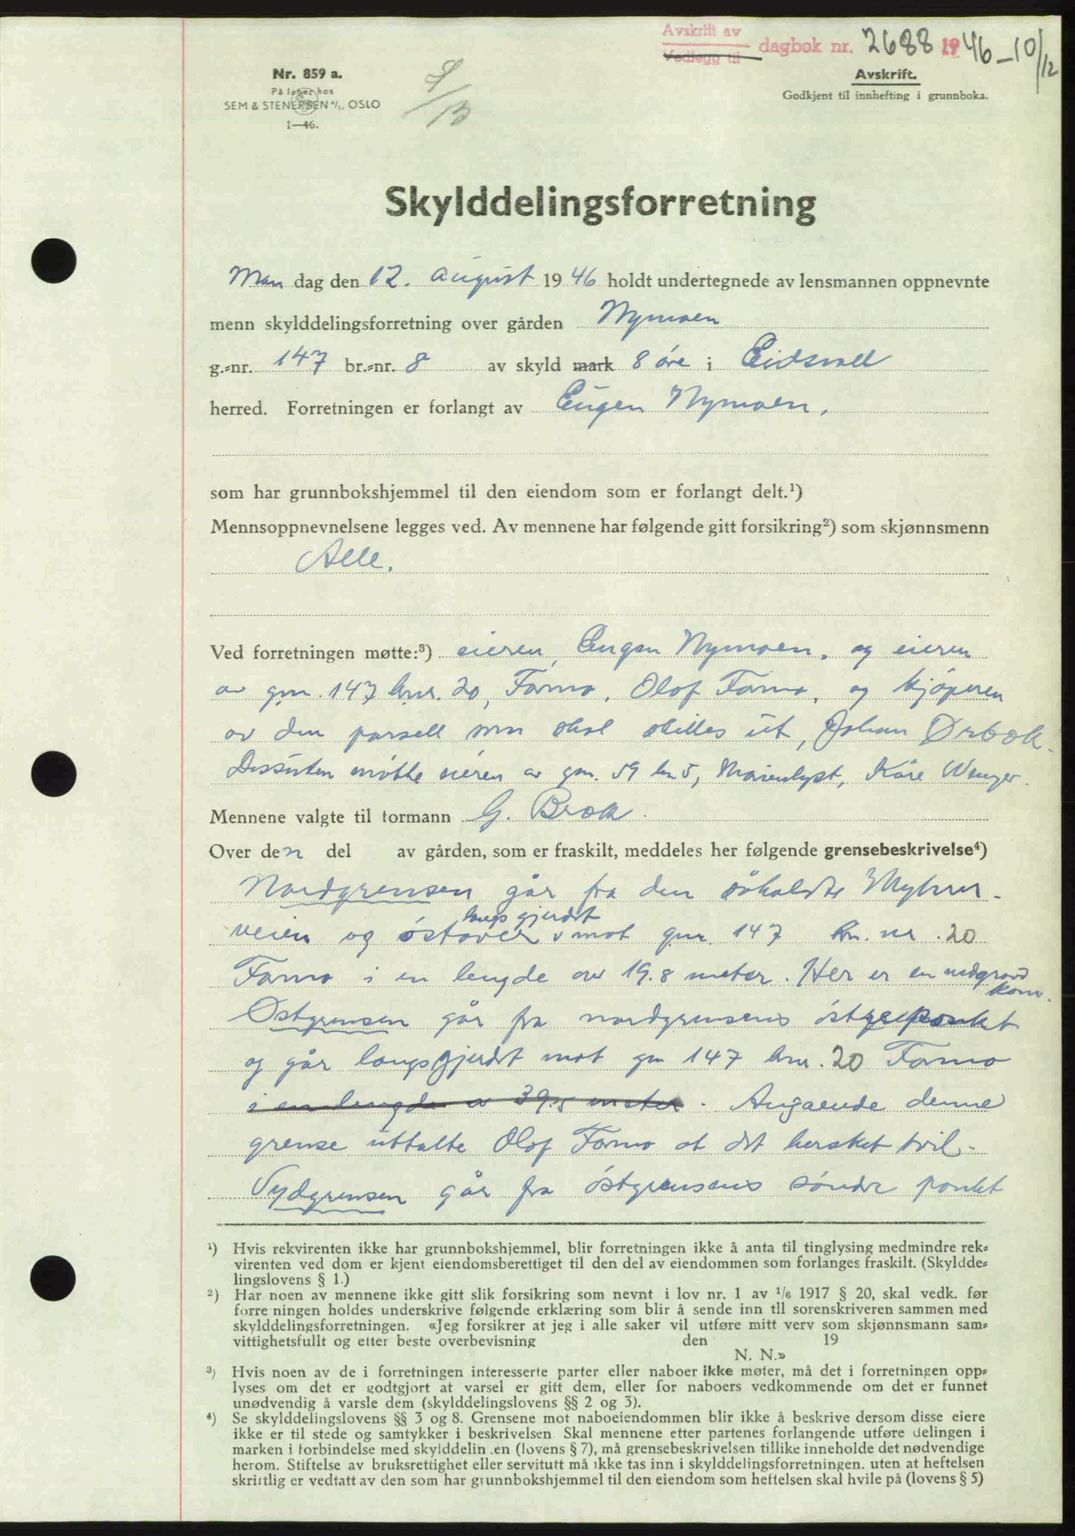 Avskrift av
Vedlegg til dagbok nr. 2688 1946-10/12
Nr. 859 a.
På lager hos
SEM & STENERSEN A/S, OSLO
1-46.
9/13
Avskrift.
Godkjent til innhefting i grunnboka.
Skylddelingsforretning
Mandag den 12. august 1946 holdt undertegnede av lensmannen oppnevnte
menn skylddelingsforretning over gården Nymoen
g.-nr. 147 br.-nr. 8 av skyld mark 8 øre i Eidsvoll
herred. Forretningen er forlangt av Eugen Nymoen.
som har grunnbokshjemmel til den eiendom som er forlangt delt.¹)
Mennsoppnevnelsene legges ved. Av mennene har følgende gitt forsikring²) som skjønnsmenn
Alle.
Ved forretningen møtte:³) eieren, Eugen Nymoen, og eieren
av gnr. 147 bnr. 20, Formo, Olof Formo, og kjøperen
av den parsell som skal skilles ut, Johan Ørbæk.
Dessuten møtte eieren av gnr. 59 bnr 5, Marienlyst, Kåre Wenger.
Mennene valgte til formann G. Brok.
Over den del av gården, som er fraskilt, meddeles her følgende grensebeskrivelse⁴)
Nordgrensen går fra den såkaldte Myhrer-
veien og østover langs gjerdet mot gnr. 147 bn. nr. 20
Formo i en lengde av 19.8 meter. Her er en nedgravd
Østgrensen går fra nordgrensens østre punkt
og går langs gjerdet mot gnr 147 bnr. 20 Formo
i en lengde av 39.5 meter. Angaaende denne
grense uttalte Olof Formo at det hersket tvil.
Sydgrensen går fra østgrensens søndre punkt
¹) Hvis rekvirenten ikke har grunnbokshjemmel, blir forretningen ikke å anta til tinglysing medmindre rek-
virenten ved dom er kjent eiendomsberettiget til den del av eiendommen som forlanges fraskilt. (Skyldde-
lingslovens § 1.)
²) Har noen av mennene ikke gitt slik forsikring som nevnt i lov nr. 1 av 1/6 1917 § 20, skal vedk. før
forretningen holdes underskrive følgende erklæring som blir å sende inn til sorenskriveren sammen med
skylddelingsforretningen. «Jeg forsikrer at jeg i alle saker vil utføre mitt verv som skjønnsmann sam-
vittighetsfullt og etter beste overbevisning den 19
N. N.»
³) Hvis noen av de i forretningen interesserte parter eller naboer ikke møter, må det i forretningen opp-
lyses om det er godtgjort at varsel er gitt dem, eller for naboers vedkommende om det er funnet
unødvendig å varsle dem (skylddelingslovens §§ 2 og 3).
⁴) Se skylddelingslovens §§ 3 og 8. Grensene mot naboeiendommen blir ikke å beskrive dersom disse eiere
ikke er til stede og samtykker i beskrivelsen. Skal mennene etter partenes forlangende utføre delingen i
marken i forbindelse med skylddelingen (lovens § 7), må grensebeskrivelsen tillike inneholde det nødvendige
herom. Stiftelse av bruksrettighet eller servitutt må ikke tas inn i skylddelingsforretningen, uten at heftelsen
skriftlig er vedtatt av den som har grunnbokshjemmel til den eiendom som heftelsen skal hvile på (lovens § 5)